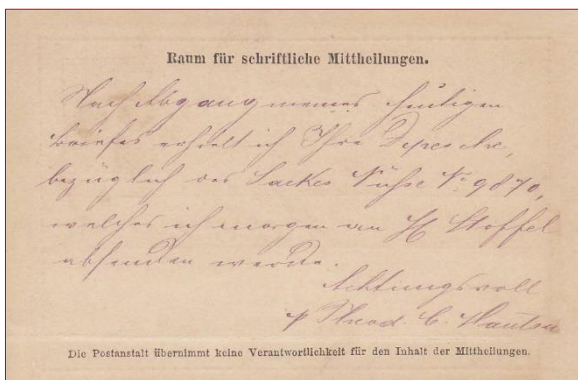 Raum für schriftliche Mittheilungen.
Nach Abgang meines heutigen
Briefes erhielt ich Ihre Depesche,
bezüglich des Sackes Nüsse No. 9870,
welches ich morgen an H Stoffel
absenden werde.
Achtungsvoll
p Theod. C.
Die Postanstalt übernimmt keine Verantwortlichkeit für den Inhalt der Mittheilungen.